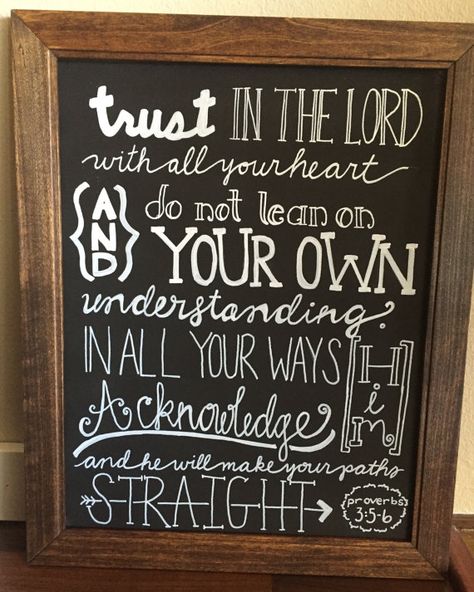 trust IN THE LORD
with all your heart
{AND} do not lean on
YOUR OWN
understanding.
IN ALL YOUR WAYS
Acknowledge [Him]
and he will make your paths
STRAIGHT
proverbs
3:5-6